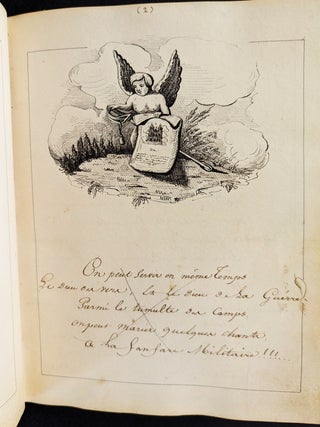 (2)
On peut servir en même temps
Le Dieu des vers, la le Dieu de la Guerre.
Parmi le tumulte des Camps
on peut marier quelques chants
a la fanfare Militaire !!!...